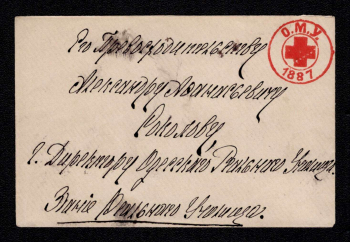 Его Превосходительству
Александру
Соколову
Г. Директору Одесскаго Реальнаго Училища
Зданіе Реальнаго Училища.
О.М.У.
1887